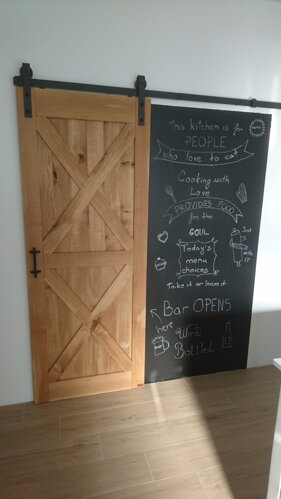 This kitchen is for
PEOPLE
who love to eat
Cooking with
Love
PROVIDES FOOD
for the
SOUL
Today's
menu
choices
Take it or leave it
Bar OPENS
here
Bottled